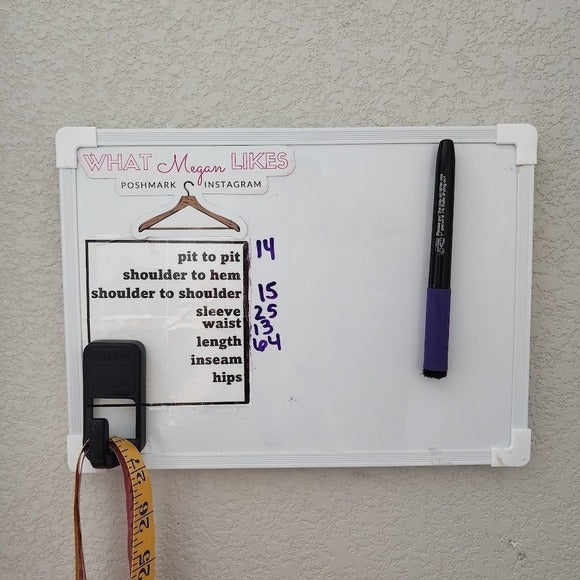 WHAT Megan LIKES
POSHMARK INSTAGRAM
pit to pit 14
shoulder to hem
shoulder to shoulder 15
sleeve 25
waist 13
length 64
inseam
hips
27
26
25